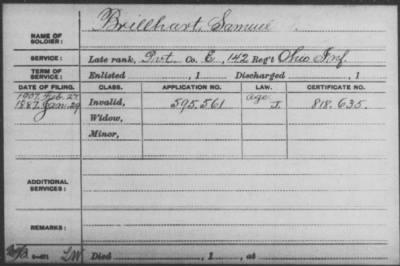 Brillhart, Samuel
NAME OF SOLDIER:
SERVICE: Late rank, Pvt. Co. E, 142 Reg't Ohio Inf.
TERM OF SERVICE: Enlisted , 1 Discharged , 1
DATE OF FILING. CLASS. APPLICATION NO. LAW. CERTIFICATE NO.
1907. Feb. 27 age
1887. Jan. 29 Invalid, 595.561 J. 818.635.
Widow,
Minor,
ADDITIONAL SERVICES:
REMARKS:
Died , 1 , at